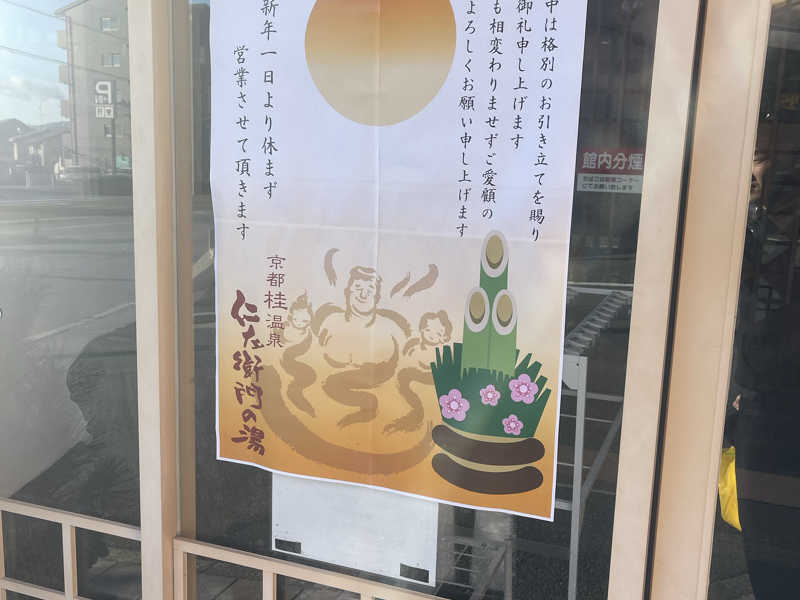 中は格別のお引き立てを賜り
御礼申し上げます
も相変わりませずご愛顧の
よろしくお願い申し上げます
新年一日より休まず
営業させて頂きます
京都桂温泉
仁左衛門の湯
館内分煙
P